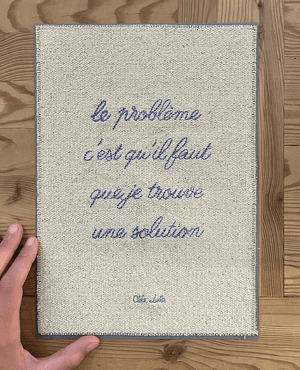 le problème
c'est qu'il faut
que je trouve
une solution